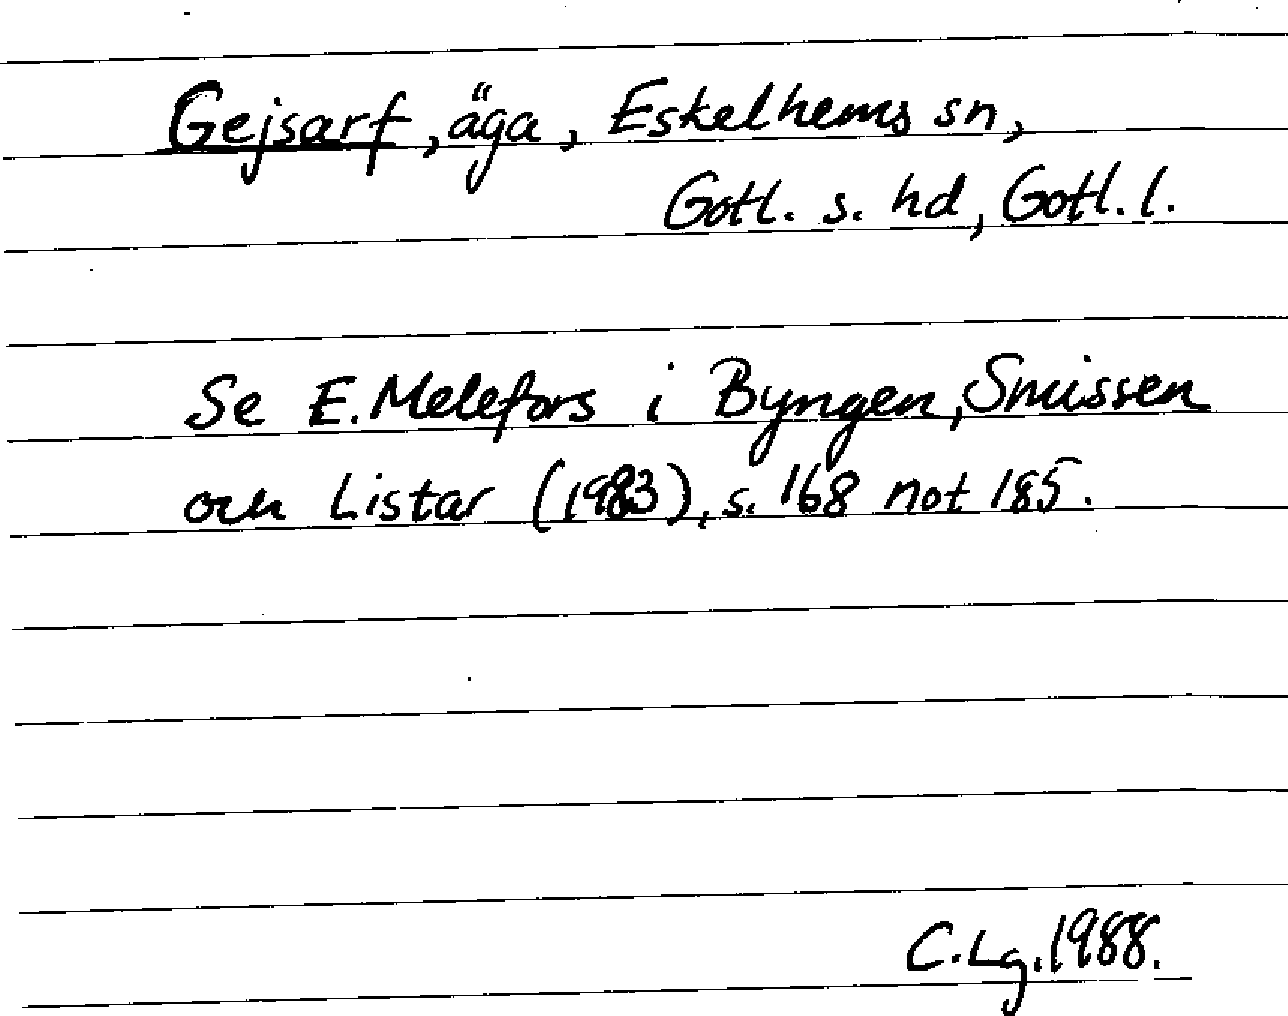 Gejsarf, äga, Eskelhems sn,
Gotl. s. hd, Gotl. l.
Se E. Melefors i Byngen, Smissen
och Listar (1983), s. 168 not 185.
C. Lg. 1988.